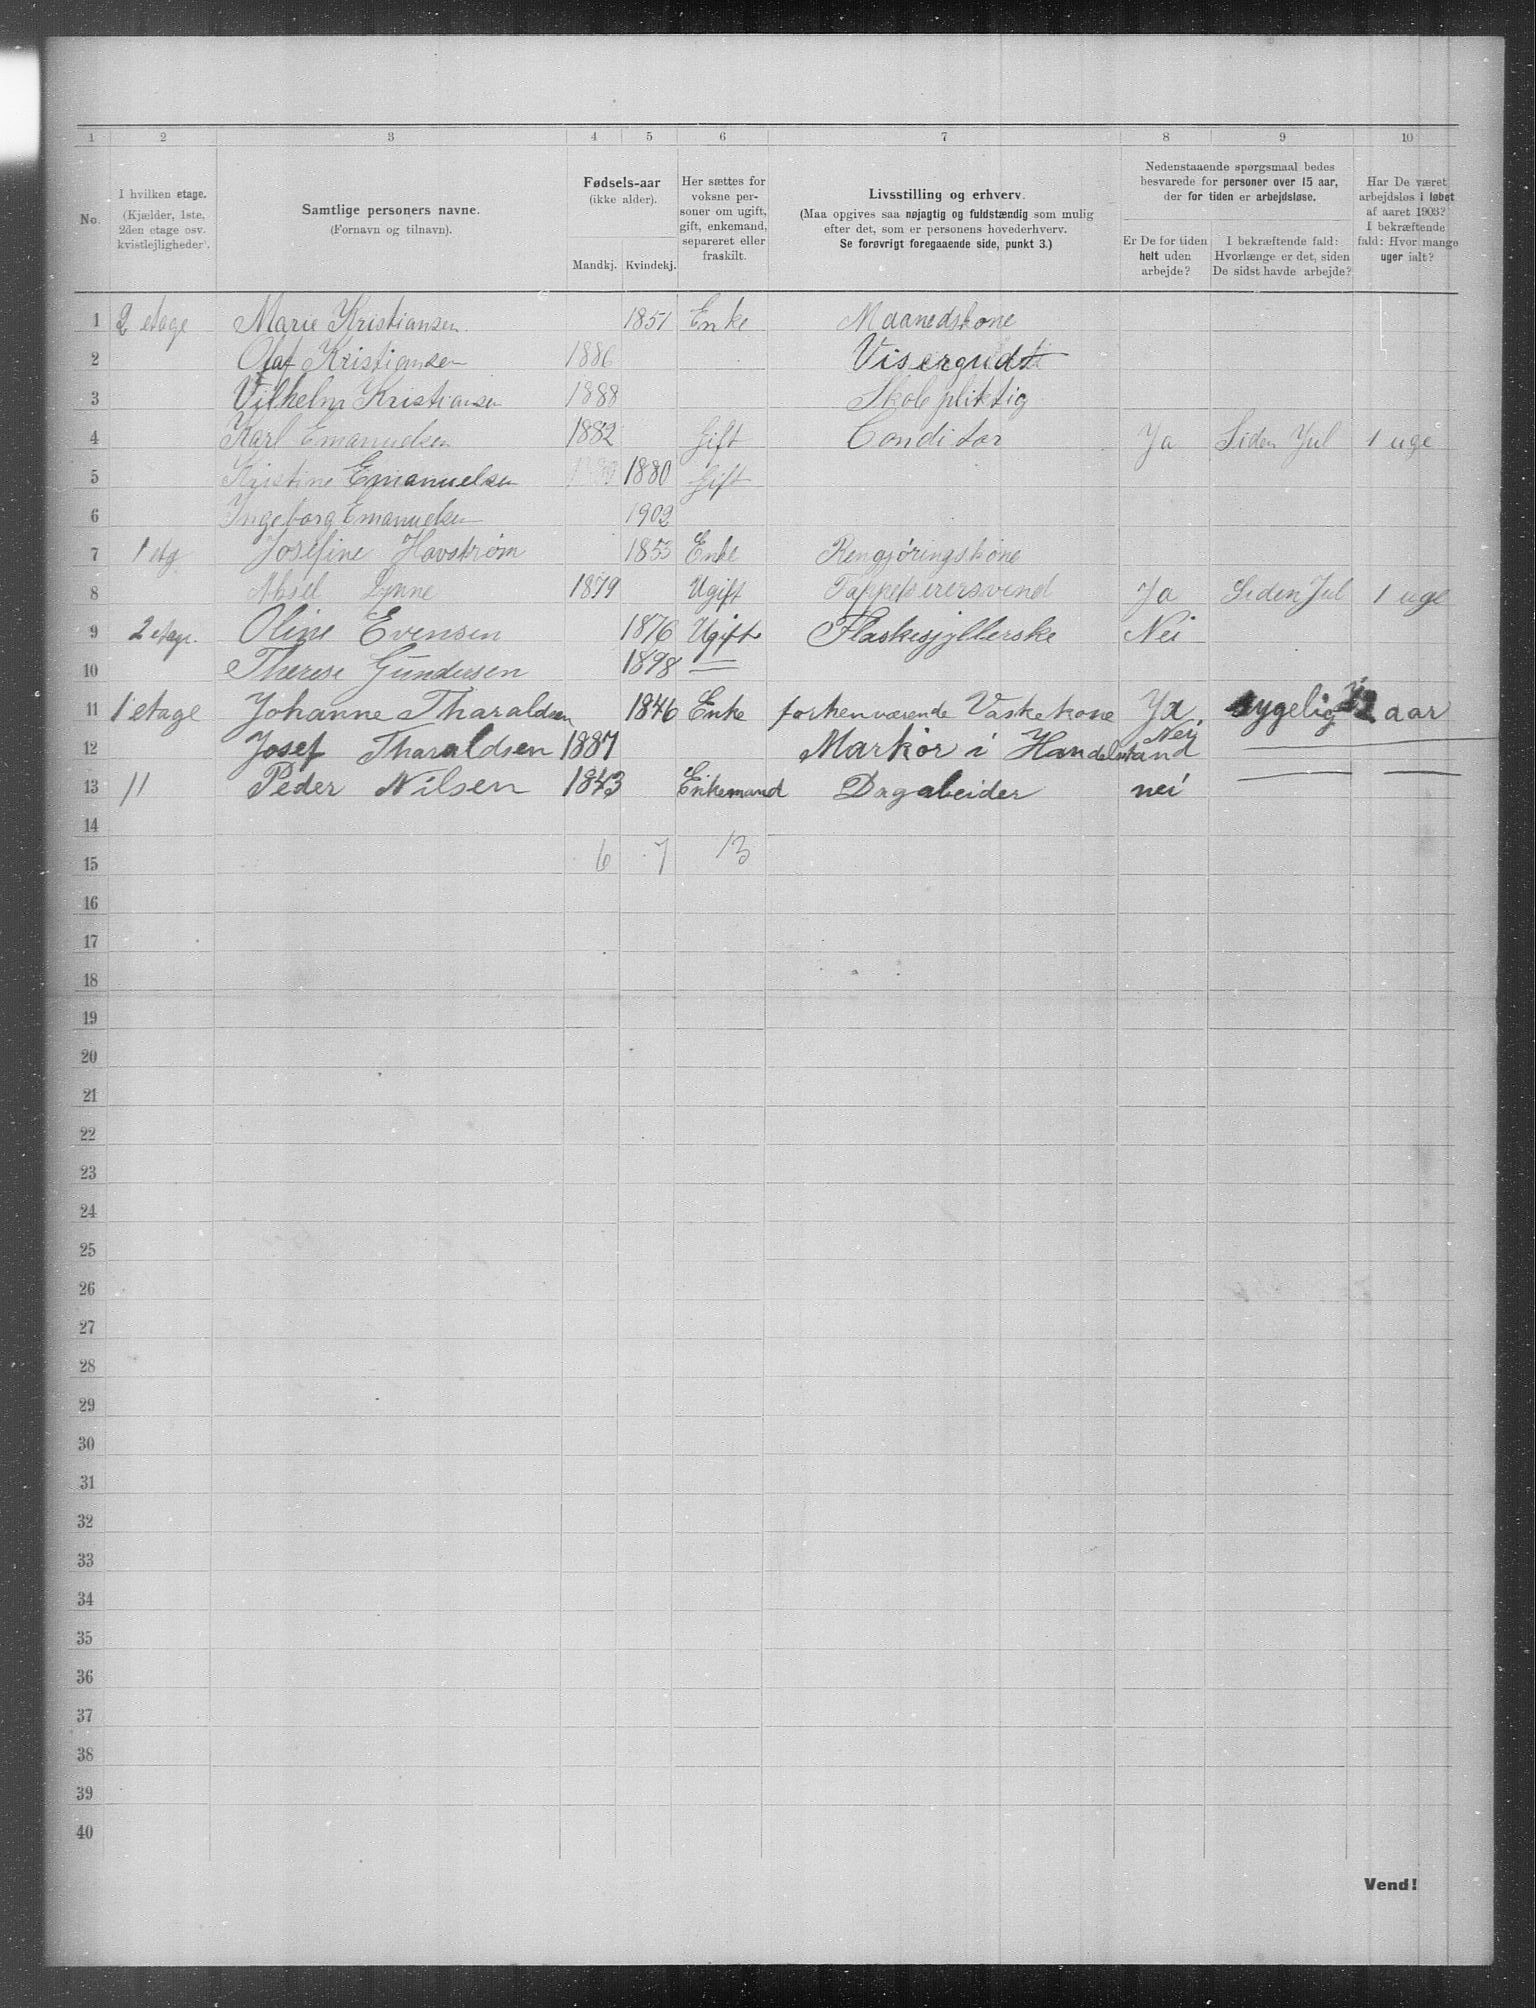 1 2 3 4 5 6 7 8 9 10
No.
I hvilken etage.
(Kjælder, 1ste,
2den etage osv.
kvistlejligheder).
Samtlige personers navne.
(Fornavn og tilnavn).
Fødsels-aar
(ikke alder).
Mandkj. Kvindekj.
Her sættes for
voksne per-
soner om ugift,
gift, enkemand,
separeret eller
fraskilt.
Livsstilling og erhverv.
(Maa opgives saa nøjagtig og fuldstændig som mulig
efter det, som er personens hovederhverv.
Se forøvrigt foregaaende side, punkt 3.)
Nedenstaaende spørgsmaal bedes
besvarede for personer over 15 aar,
der for tiden er arbejdsløse.
Er De for tiden
helt uden
arbejde?
I bekræftende fald:
Hvorlænge er det, siden
De sidst havde arbejde?
Har De været
arbejdsløs i løbet
af aaret 1903?
I bekræftende
fald: Hvor mange
uger ialt?
1 2 etage Marie Kristiansen 1851 Enke Maanedskone
2 Olaf Kristiansen 1886 Visergudt
3 Vilhelm Kristiansen 1888 Skolepliktig
4 Karl Emanuelsen 1882 Gift Conditor Ja Siden Jul 1 uge
5 Kristine Emanuelsen 1880 Gift
6 Ingeborg Emanuelsen 1902
7 1 etg Josefine Havstrøm 1853 Enke Rengjøringskone
8 Aksel Lynne 1879 Ugift Tappetserersvend Ja Siden Jul 1 uge
9 2 etag. Oline Evensen 1876 Ugift Flaskesjyllerske Nei
10 Therese Gundersen 1898 —
11 1 etage Johanne Tharaldsen 1846 Enke forhenværende Vaskekone Ja, sygelig 2 aar
12 Josef Tharaldsen 1887 Markør i Handelsstand Nei
13 11 Peder Nilsen 1843 Enkemand Dagabeider nei
14
15 6 7 13
16
17
18
19
20
21
22
23
24
25
26
27
28
29
30
31
32
33
34
35
36
37
38
39
40
Vend!